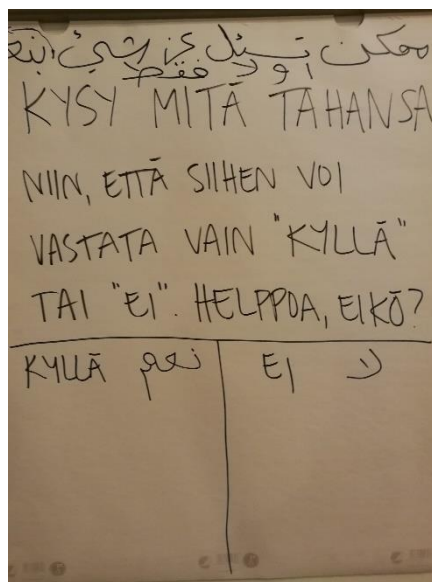 ممكن تسئل عن شيئ
او لا فقط
KYSY MITÄ TAHANSA
NIIN, ETTÄ SIIHEN VOI
VASTATA VAIN "KYLLÄ"
TAI "EI". HELPPOA, EIKÖ?
KYLLÄ نعم EI لا